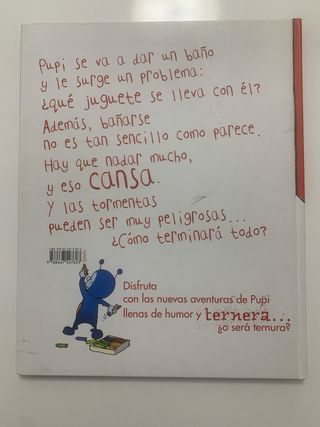 Pupi se va a dar un baño
y le surge un problema:
¿qué juguete se lleva con él?
Además, bañarse
no es tan sencillo como parece.
Hay que nadar mucho,
y eso cansa.
Y las tormentas
pueden ser muy peligrosas...
¿Cómo terminará todo?
Disfruta
con las nuevas aventuras de Pupi
llenas de humor y ternera...
¿o será ternura?